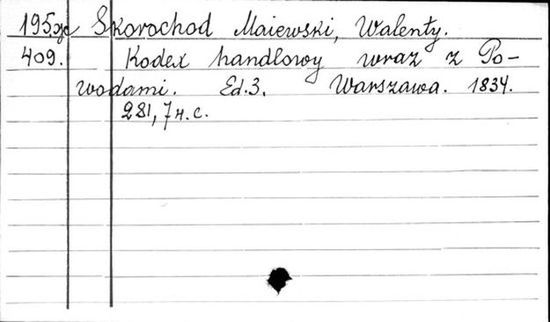 195ж Skorochod Maiewski, Walenty.
409. Kodex handlowy wraz z Po-
wodami. Ed. 3. Warszawa. 1834.
281, 7 н. с.